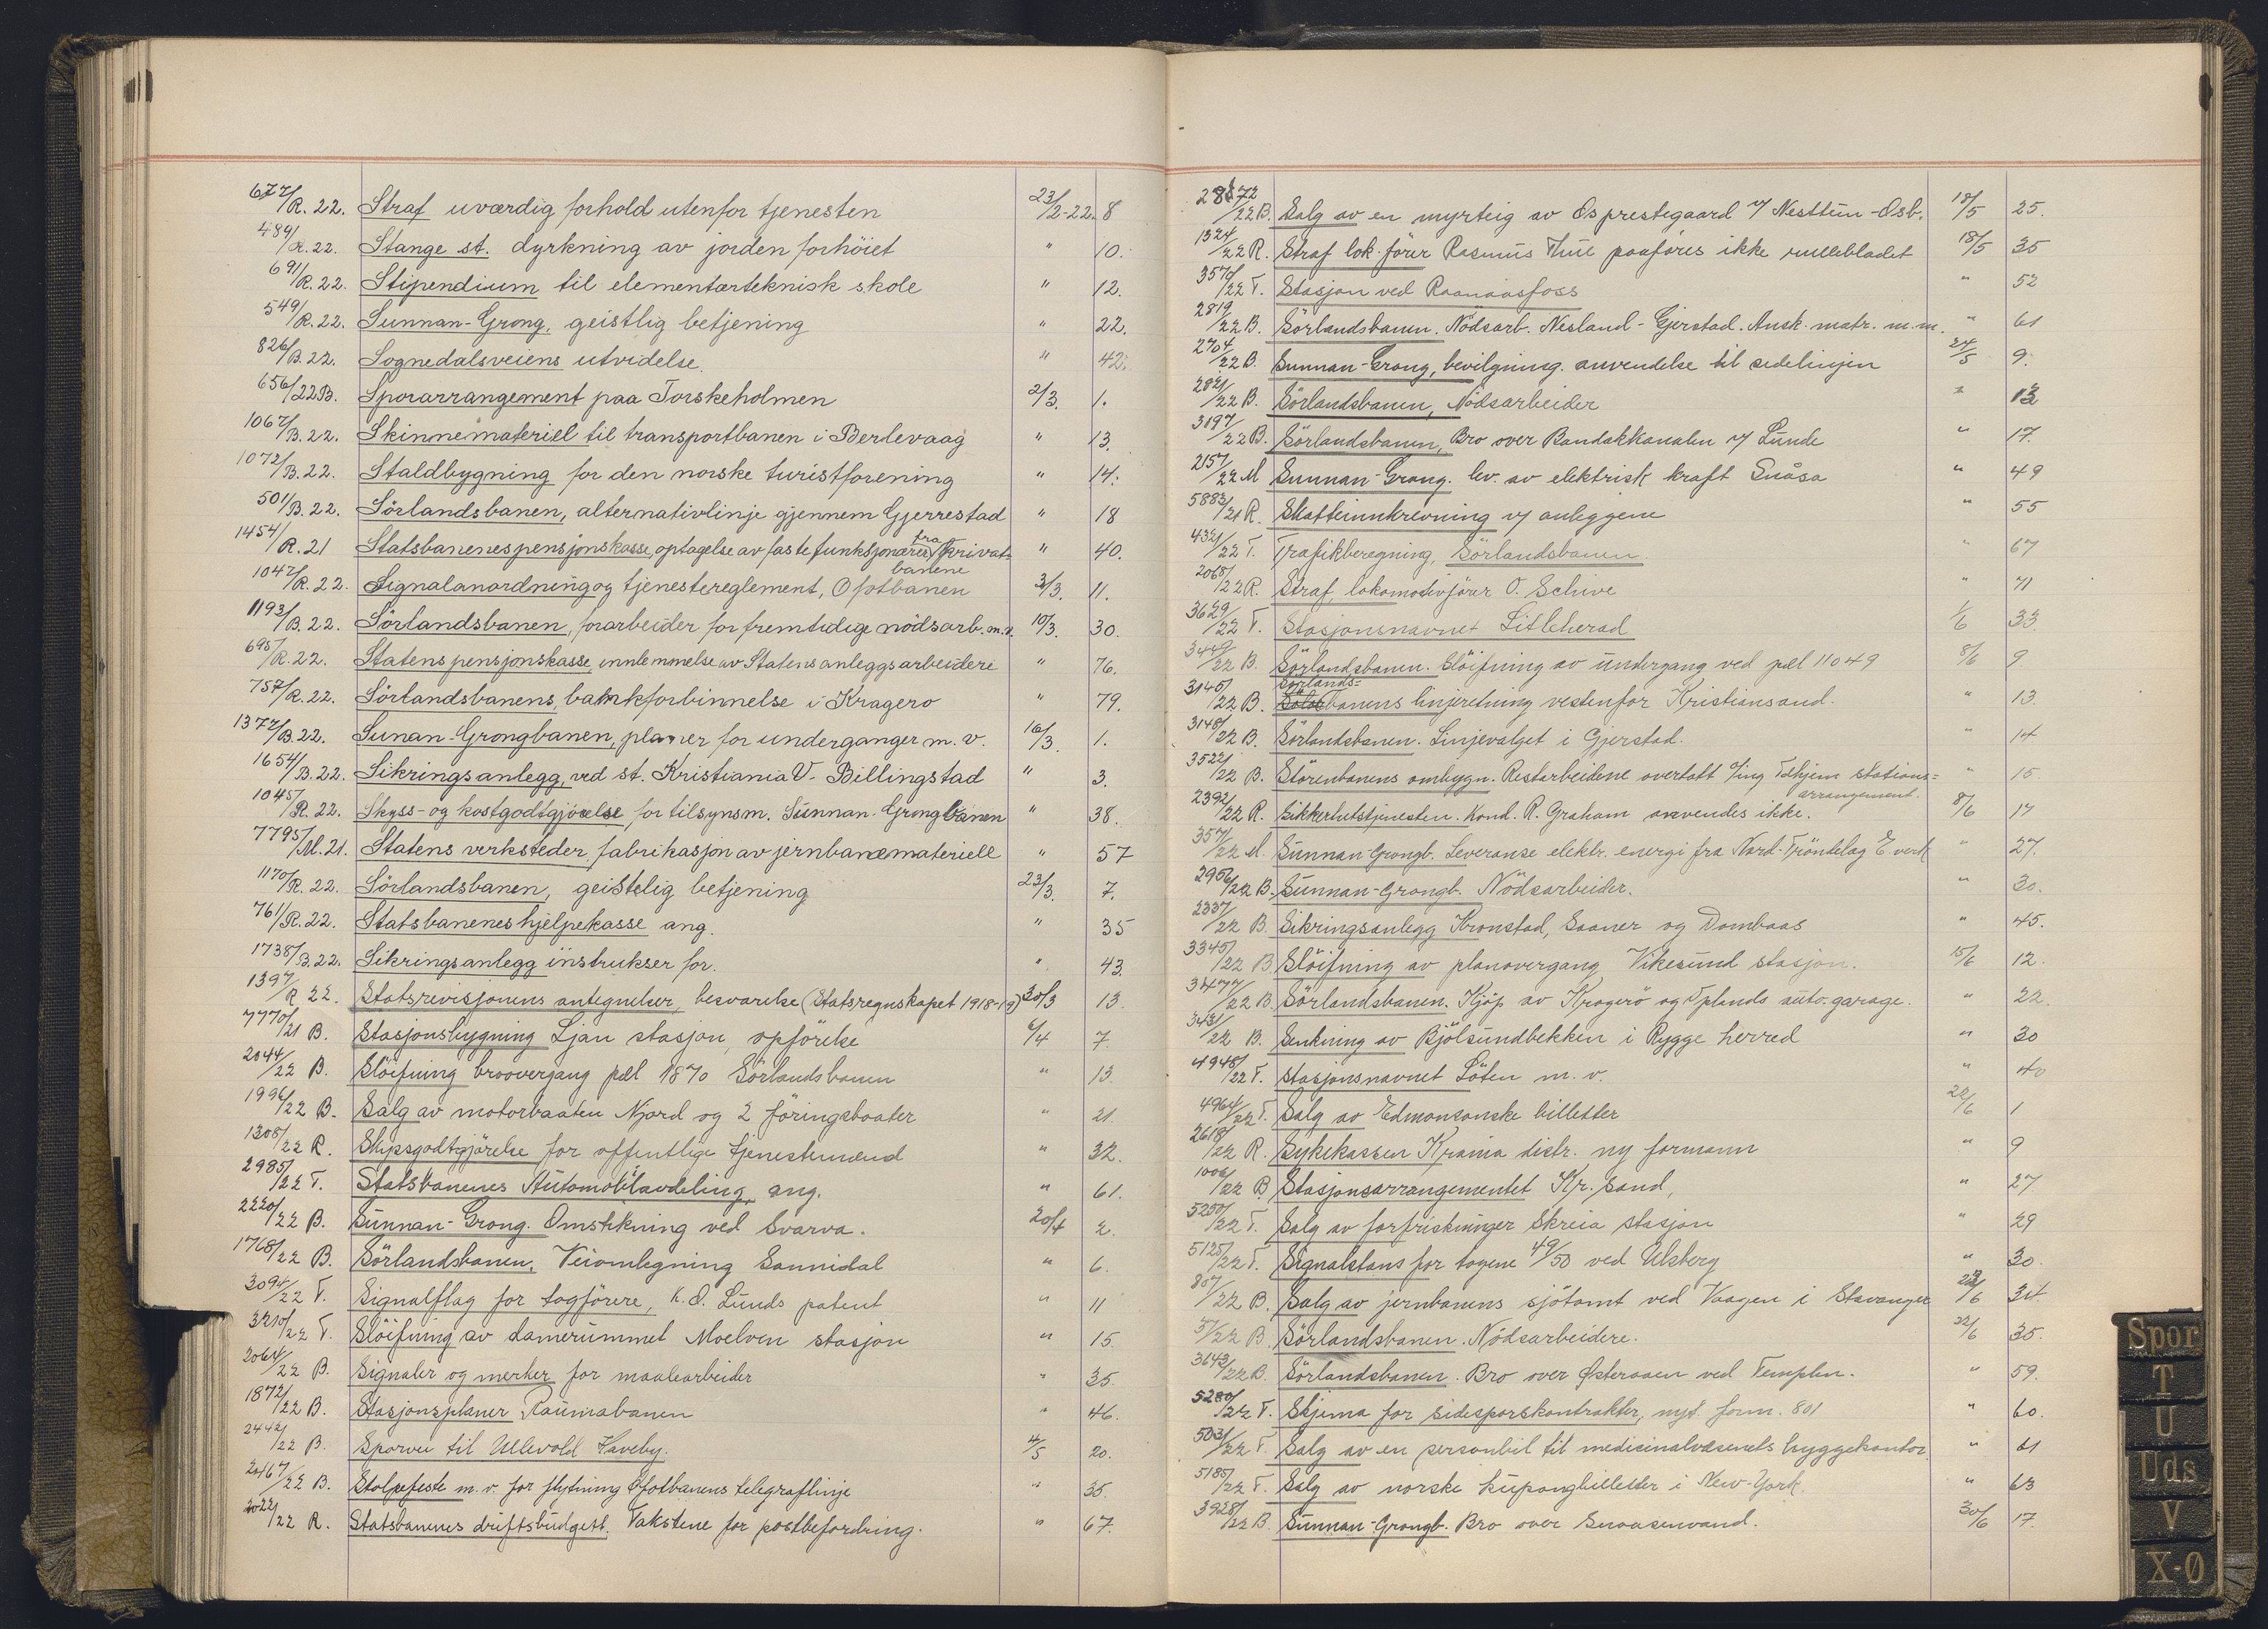 677/R. 22. Straf uværdig forhold utenfor tjenesten 23/2-22. 8
489/R. 22. Stange st. dyrkning av jorden forhöiet " 10.
691/R. 22. Stipendium til elementærteknisk skole " 12.
549/R. 22. Sunnan-Grong, geistlig betjening " 22.
826/B. 22. Sognedalsveiens utvidelse. " 42.
656/22B. Sporarrangement paa Torskeholmen 2/3. 1.
1067/B. 22. Skinnemateriell til transportbanen i Berlevaag " 13.
1072/B. 22. Staldbygning for den norske turistforening " 14.
501/B. 22. Sörlandsbanen, alternativlinje gjennem Gjerrestad " 18
1454/R. 21 Statsbanenes pensjonskasse, optagelse av faste funksjonærer fra Privat- " 40.
banene
1047/R. 22. Signalanordning og tjenestereglement, Ofotbanen 3/3. 11.
1193/B. 22. Sörlandsbanen, forarbeider for fremtidige nödsarb. m.v. 10/3. 30.
695/R. 22. Statens pensjonskasse, innlemmelse av Statens anleggsarbeidere " 76.
757/R. 22. Sörlandsbanens, bankforbinnelse i Kragerø " 79.
1377/B. 22. Sunan-Grongbanen, planer for underganger m. v. 16/3. 1.
1654/B. 22. Sikringsanlegg, ved st. Kristiania V.- Billingstad " 3.
1045/R. 22. Skyss- og kostgodtgjörelse for tilsynsm. Sunnan-Grongbanen " 38.
7795/M. 21. Statens verksteder, fabrikasjon av jernbanemateriell " 57
1170/R. 22. Sörlandsbanen, geistelig betjening 23/3. 7.
761/R. 22. Statsbanenes hjelpekasse ang. " 35
1738/B. 22. Sikringsanlegg instrukser for. " 43.
1397/R 22. Statsrevisjonens antegnelser, besvarelse (Statsregnskapet 1918-19) 30/3 13.
7770/21 B. Stasjonsbygning Ljan stasjon, opförelse 6/4 7.
2044/22 B. Slöifning broovergang pæl 1870 Sörlandsbanen " 13.
1996/22 B. Salg av motorbaaten Njord og 2 föringsbaater " 21.
1308/22 R. Skipsgodtgjörelse for offentlige tjenestemænd " 32.
2985/22 T. Statsbanenes Automobilavdeling ang. " 61.
2220/22 B. Sunnan-Grong. Omstikning ved Svarva. 20/4 2.
1768/22 B. Sörlandsbanen, Veiomlegning Sannidal " 6.
3094/22 T. Signalflag for togförere, K.O. Lunds patent " 11
3210/22 T. Slöifning av damerummet Moelven stasjon " 15.
2064/22 B. Signaler og merker for maalearbeider " 35.
1872/22 B. Stasjonsplaner Raumabanen " 46.
2442/22 B. Sporvei til Ullevold Haveby. 4/5 20.
2467/22 B. Stolpefeste m. v. for flytning Ofotbanens telegraflinje " 35.
3022/22 R. Statsbanenes driftsbudgett. Takstene for postbefordring. " 67.
2872/22 B. Salg av en myrteig av Os prestegaard v/ Nesttun-Osb. 18/5 25.
1324/22 R. Straf lok. förer Rasmus Thue paaföres ikke rullebladet 18/5 35
3570/22 T. Stasjon ved Raanaasfoss " 52
2819/22 B. Sörlandsbanen. Nödsarb. Nesland-Gjerstad. Ansk. matr. m.m. " 61
2704/22 B. Sunnan-Grong, bevilgning. anvendelse til sidelinjen 24/5 9.
2821/22 B. Sörlandsbanen, Nödsarbeider " 13
3197/22 B. Sörlandsbanen, Bro over Bandakkanalen v/ Lunde " 17.
2157/22 M Sunnan-Grong. lev. av elektrisk kraft Snåsa " 49
5883/21 R. Skatteinnkrevning v/ anleggene " 55
4321/22 T. Trafikberegning, Sörlandsbanen. " 67
2068/22 R. Straf, lokomotivförer O. Schive " 71
3629/22 T. Stasjonsnavnet Litleherad 1/6 33.
3449/22 B. Sörlandsbanen. Slöifning av undergang ved pæl 11049 8/6 9
Sörlands=
3145/22 B. banens linjeretning vestenfor Kristiansand. " 13.
3148/22 B. Sörlandsbanen. Linjevalget i Gjerstad. " 14
3522/22 B. Störenbanens ombygn. Restarbeidene overtatt Ting Selhjem stations= " 15.
arrangement.
2392/22 R. Sikkerhetstjenesten. Kond. R. Graham anvendes ikke. 8/6 17
357/22 M. Sunnan-Grongb. Leveranse elektr. energi fra Nord-Tröndelag E. verk " 27.
2956/22 B. Sunnan-Grongb. Nödsarbeider. " 30.
2337/22 B. Sikringsanlegg Kronstad, Saaner og Dombaas " 45.
3345/22 B. Slöifning av planovergang Vikesund stasjon. 15/6 12.
3477/22 B. Sörlandsbanen. Kjøp av Kragerö og Oplands auto.garage. " 22.
3431/22 B. Senkning av Bjölsundbekken i Rygge herred " 30
4948/22 T. Stasjonsnavnet Löten m. v. " 40
4964/22 T. Salg av Edmonsonske billetter 22/6 1
2618/22 R. Sykekassen Krania distr. ny formann " 9
1006/22 B Stasjonsarrangementet Kr. sand, " 27
5250/22 T. Salg av forfriskninger Skreia stasjon " 29
5125/22 T. Signalstans for togene 49/50 ved Ulsberg " 30.
807/22 B. Salg av jernbanens sjötomt ved Vaagen i Stavanger 22/6 34
57/22 B. Sörlandsbanen. Nödsarbeidere. 22/6 35.
3643/22 B. Sörlandsbanen. Bro over Østeraaen ved Templen. " 59.
5280/22 T. Skjema for sidesporskontrakter, nyt. form. 801 " 60.
5031/22 T. Salg av en personbil til medicinalvæsenets byggekontor " 61
5185/22 T. Salg av norske kupongbilletter i New-York. " 63
3928/22 B. Sunnan-Grongb. Bro over Snaasenvand. 30/6 17.
Spor
T
U
Uds
V
X-Ø